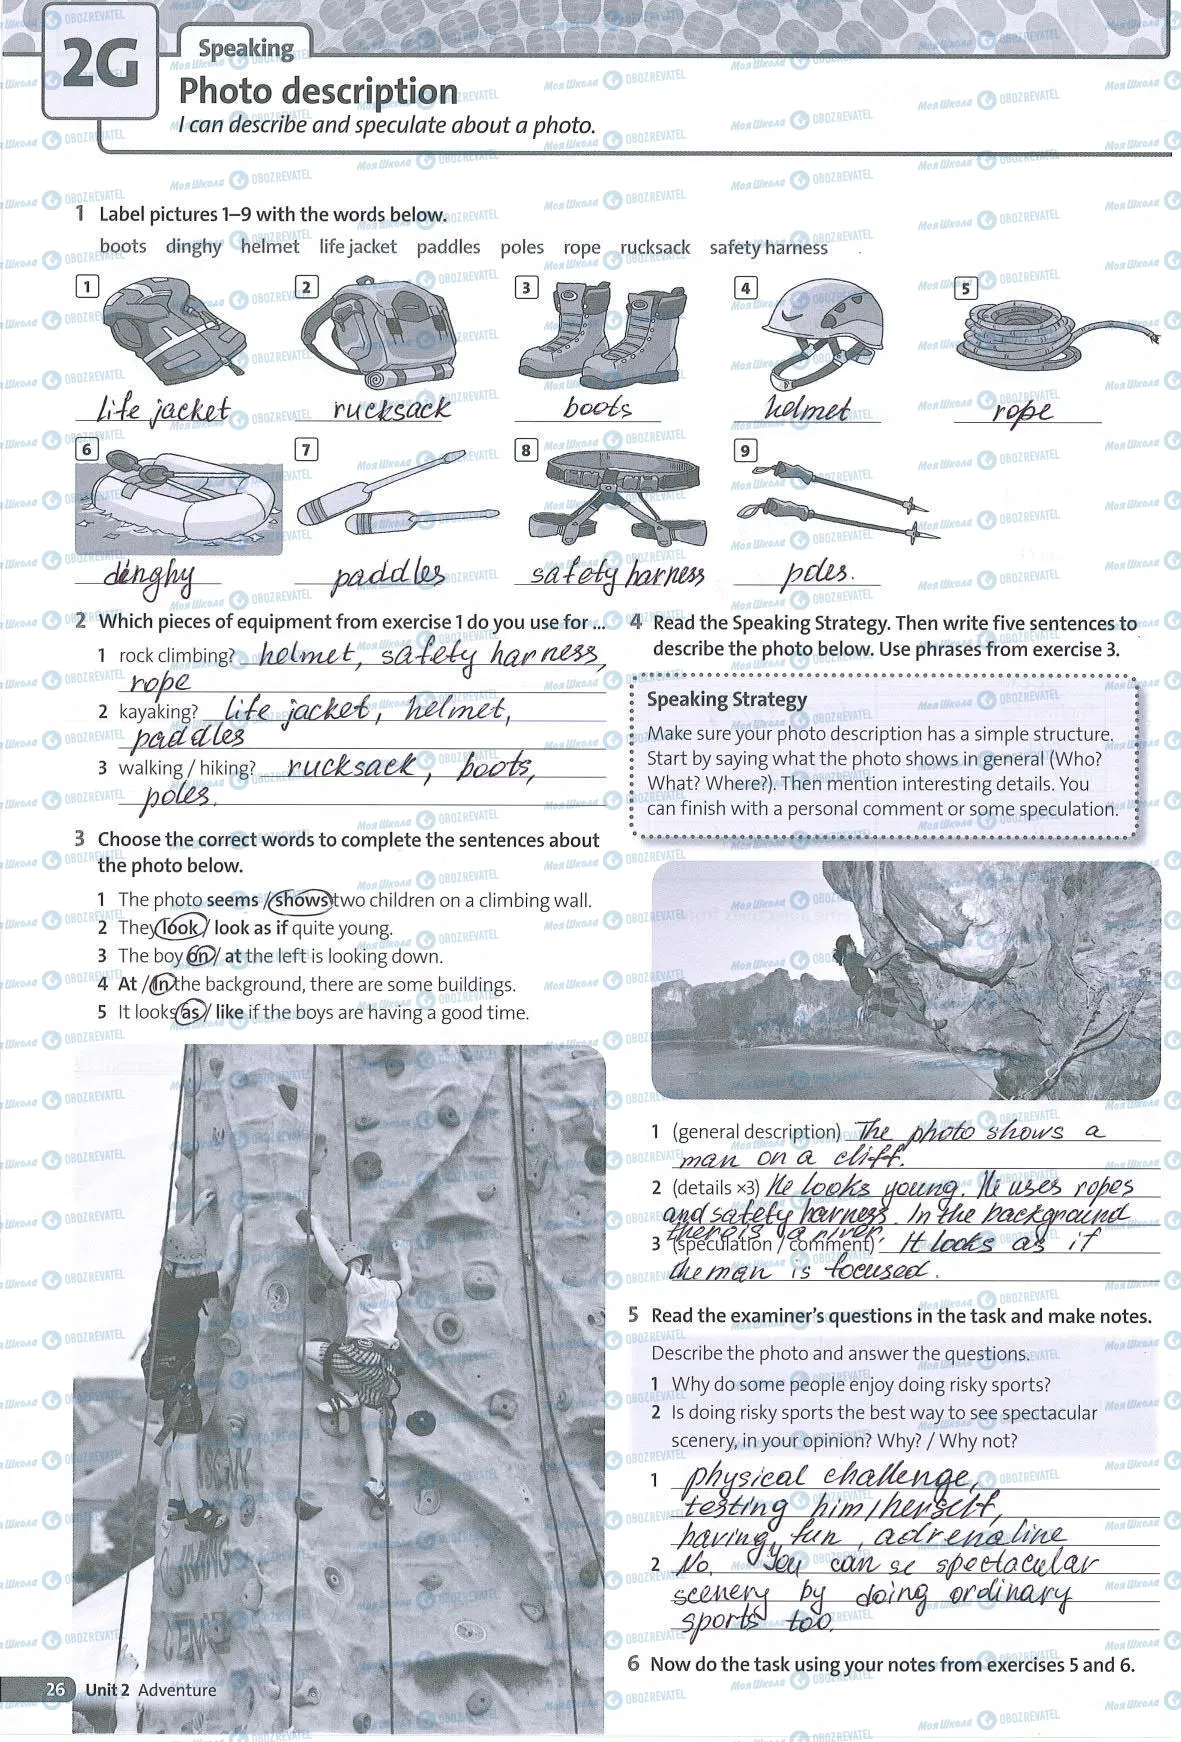 2G
Speaking
Photo description
I can describe and speculate about a photo.
1 Label pictures 1–9 with the words below.
boots dinghy helmet life jacket paddles poles rope rucksack safety harness
1 2 3 4 5
life jacket rucksack boots helmet rope
6 7 8 9
dinghy paddles safety harness poles.
2 Which pieces of equipment from exercise 1 do you use for ...
1 rock climbing? helmet, safety harness,
rope
2 kayaking? life jacket, helmet,
paddles
3 walking / hiking? rucksack, boots,
poles.
3 Choose the correct words to complete the sentences about
the photo below.
1 The photo seems / shows two children on a climbing wall.
2 They look / look as if quite young.
3 The boy on / at the left is looking down.
4 At / In the background, there are some buildings.
5 It looks as / like if the boys are having a good time.
4 Read the Speaking Strategy. Then write five sentences to
describe the photo below. Use phrases from exercise 3.
Speaking Strategy
Make sure your photo description has a simple structure.
Start by saying what the photo shows in general (Who?
What? Where?). Then mention interesting details. You
can finish with a personal comment or some speculation.
1 (general description) The photo shows a
man on a cliff.
2 (details ×3) He looks young. He uses ropes
and safety harness. In the background
there is a river.
3 (speculation / comment) It looks as if
the man is focused.
5 Read the examiner's questions in the task and make notes.
Describe the photo and answer the questions.
1 Why do some people enjoy doing risky sports?
2 Is doing risky sports the best way to see spectacular
scenery, in your opinion? Why? / Why not?
1 physical challenge,
testing him/herself,
having fun, adrenaline
2 No. You can se spectacular
scenery by doing ordinary
sports too.
6 Now do the task using your notes from exercises 5 and 6.
26 Unit 2 Adventure
МояШкола OBOZREVATEL